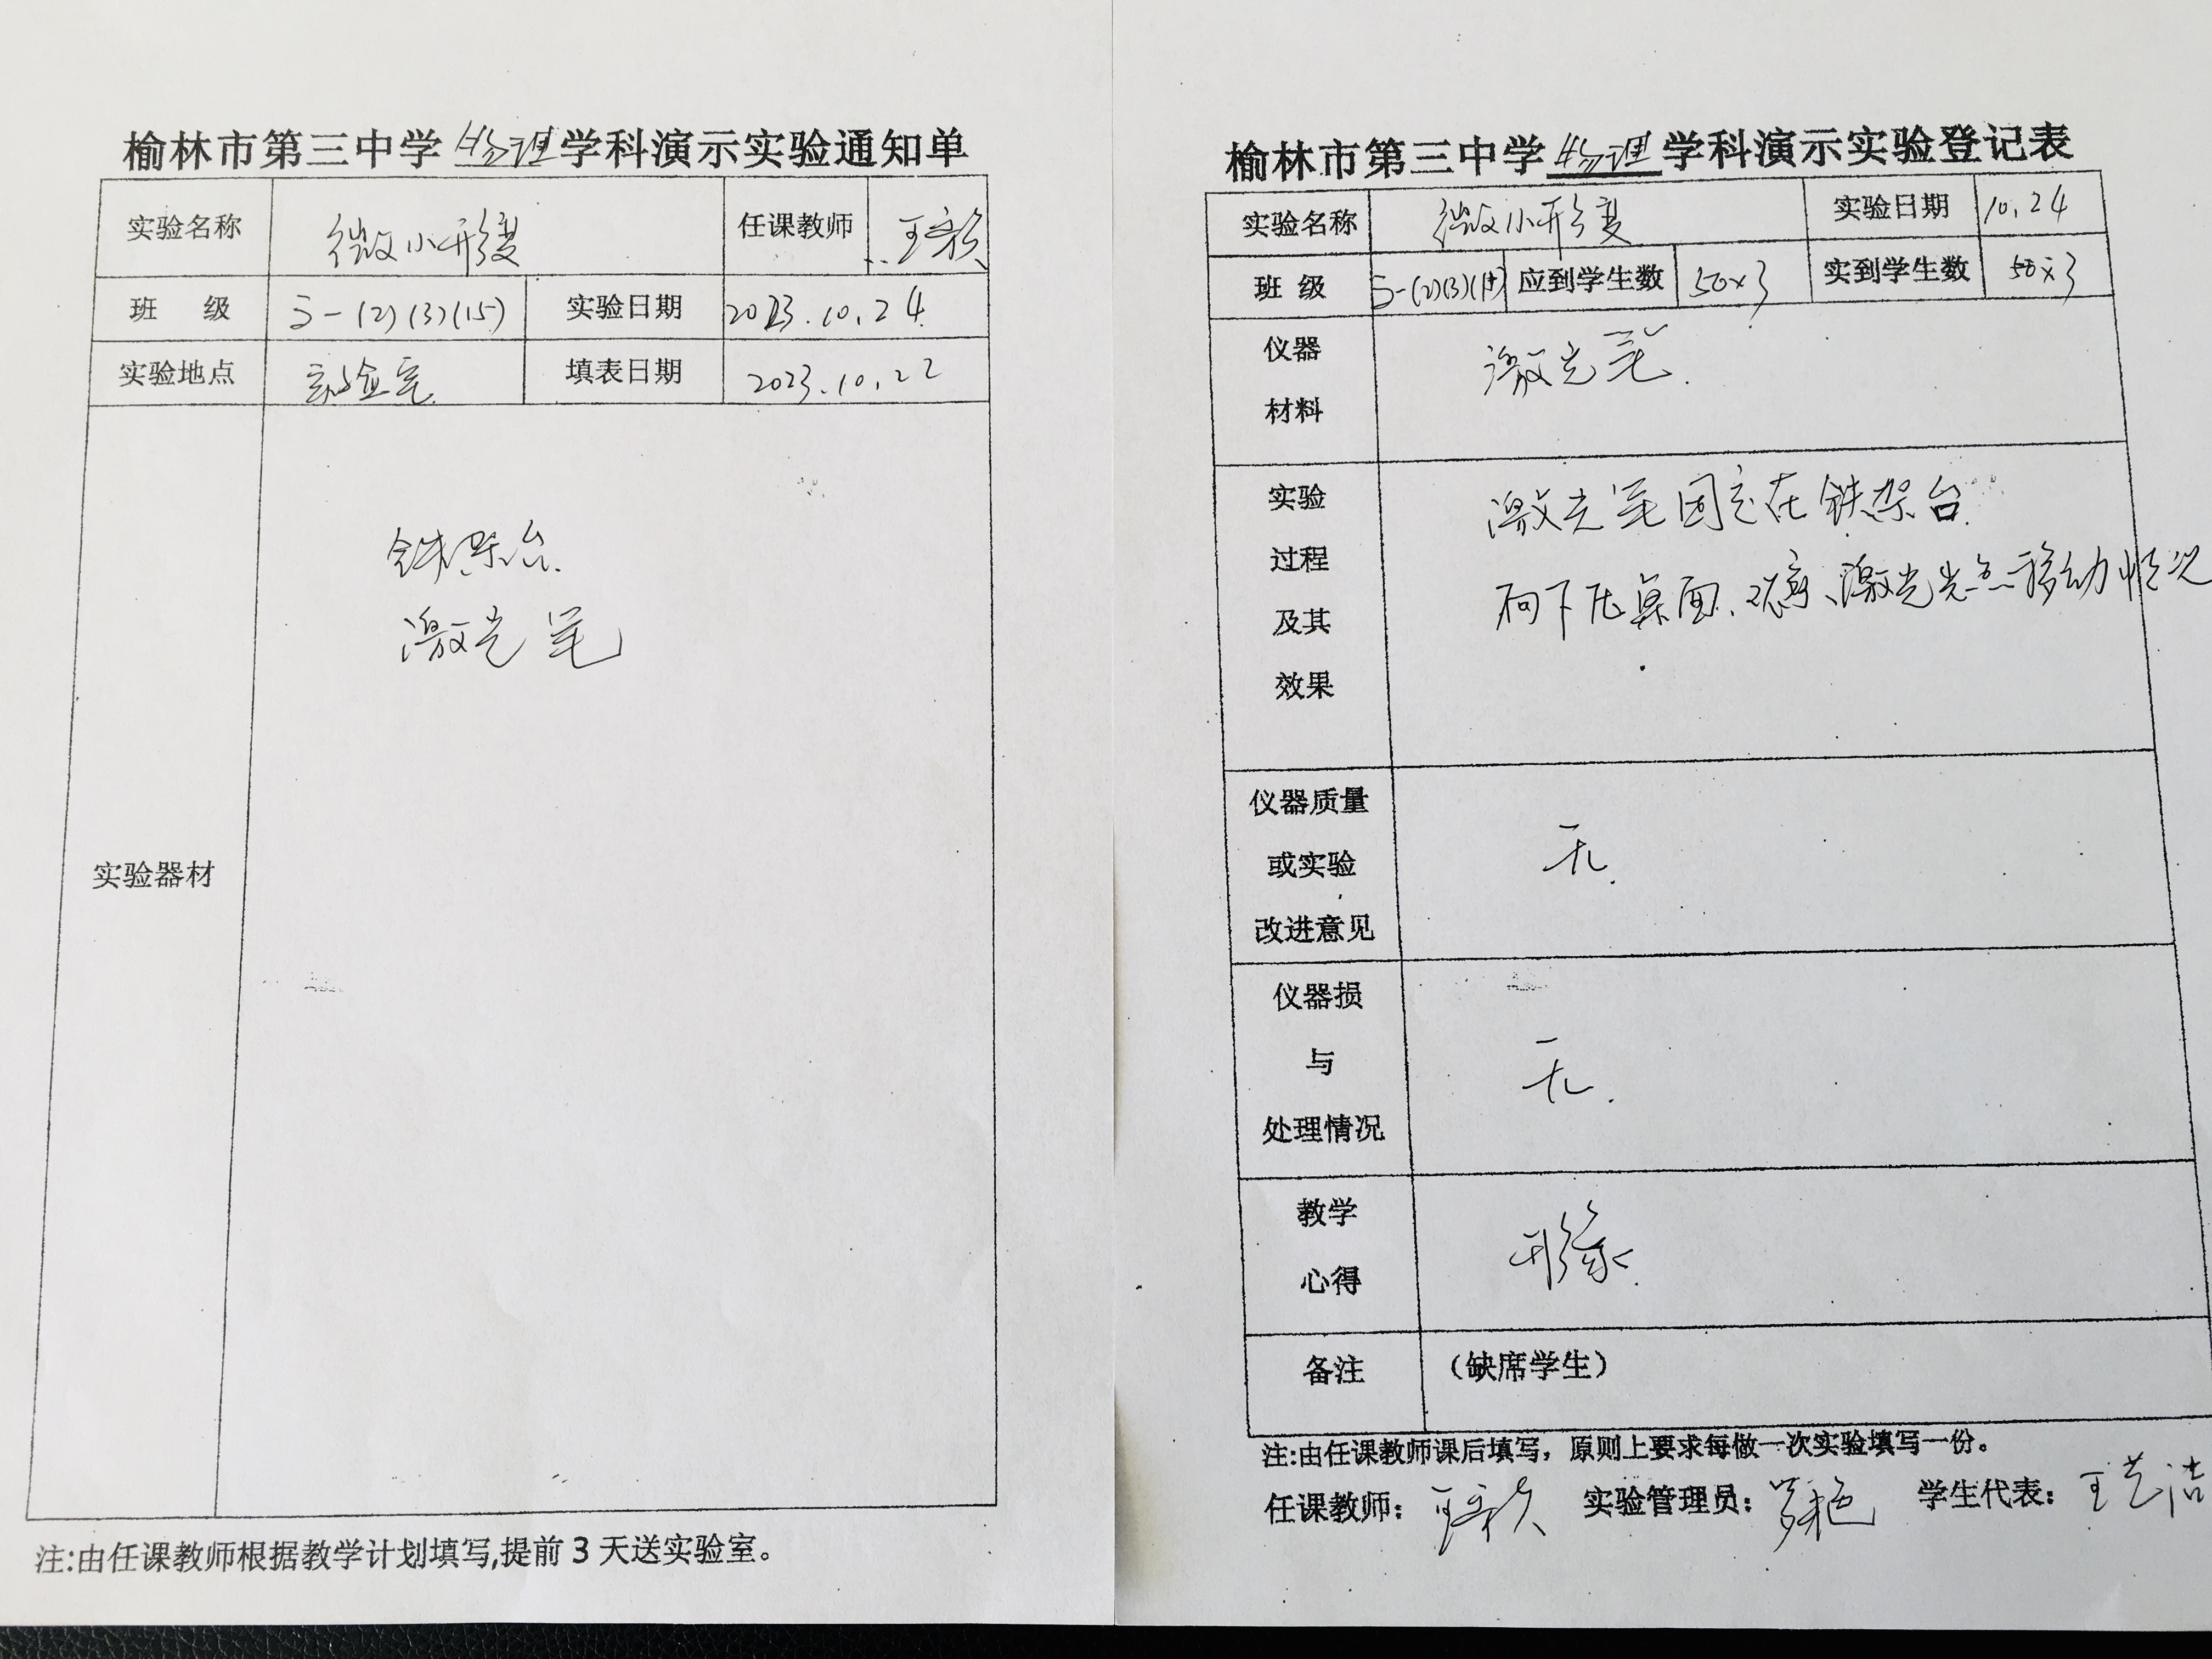 榆林市第三中学物理学科演示实验通知单
实验名称 微小形变 任课教师 王
班 级 高一(2)(3)(15) 实验日期 2023.10.24
实验地点 实验室 填表日期 2023.10.22
实验器材
铁架台.
激光笔
注:由任课教师根据教学计划填写,提前3天送实验室。
榆林市第三中学物理学科演示实验登记表
实验名称 微小形变 实验日期 10.24
班 级 高一(2)(3) 应到学生数 50×3 实到学生数 50×3
仪器
材料
激光笔.
实验
过程
及其
效果
激光笔固定在铁架台.
向下压桌面.观察激光光点移动情况
仪器质量
或实验
改进意见
无.
仪器损
与
处理情况
无.
教学
心得
形象.
备注 (缺席学生)
注:由任课教师课后填写，原则上要求每做一次实验填写一份。
任课教师: 王 实验管理员: 学生代表: 王艺洁